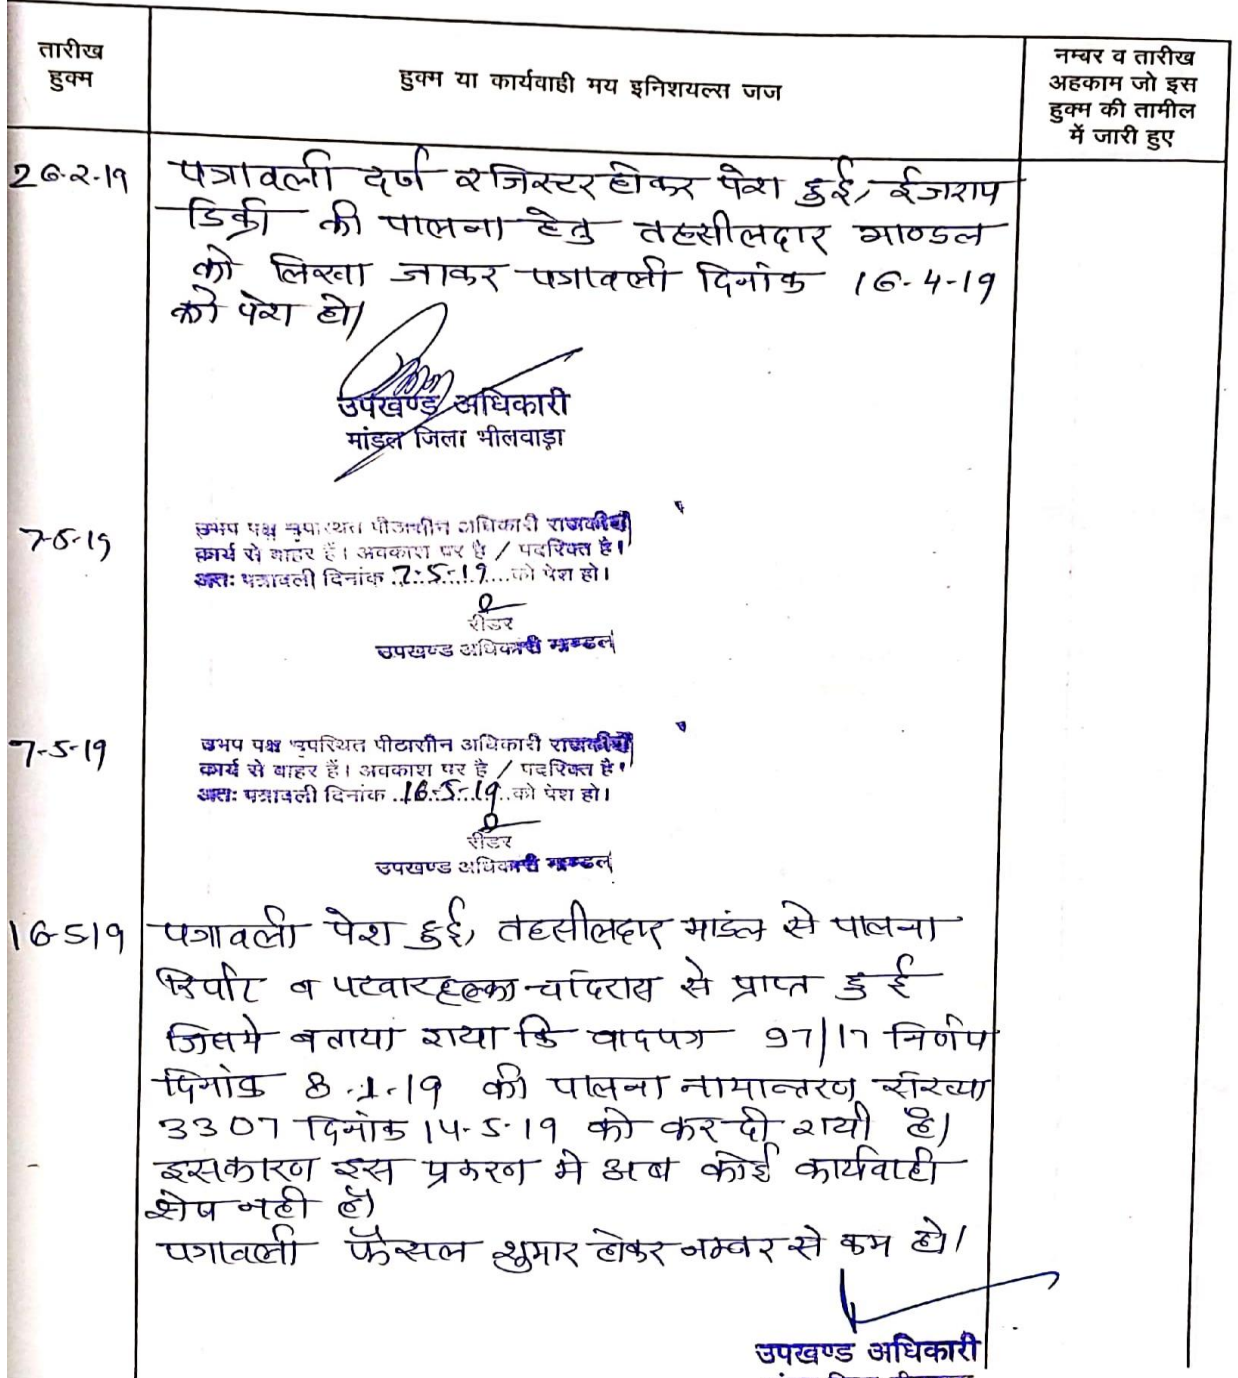 तारीख
हुक्म
हुक्म या कार्यवाही मय इनिशयल्स जज
नम्बर व तारीख
अहकाम जो इस
हुक्म की तामील
में जारी हुए
26-2-19
पत्रावली दर्ज रजिस्टर होकर पेश हुई, ईजराय
डिक्री की पालना हेतु तहसीलदार माण्डल
को लिखा जाकर पत्रावली दिनांक 16-4-19
को पेश हो।
उपखण्ड अधिकारी
मांडल जिला भीलवाड़ा
उभय पक्ष उपस्थित पीठासीन अधिकारी राजकीय
कार्य से बाहर हैं। अवकाश पर है / पदरिक्त है।
अतः पत्रावली दिनांक 7-5-19 को पेश हो।
रीडर
उपखण्ड अधिकारी माण्डल
7-5-19
उभय पक्ष उपस्थित पीठासीन अधिकारी राजकीय
कार्य से बाहर हैं। अवकाश पर है / पदरिक्त है।
अतः पत्रावली दिनांक 16-5-19 को पेश हो।
रीडर
उपखण्ड अधिकारी माण्डल
16-5-19
पत्रावली पेश हुई, तहसीलदार मांडल से पालना
रिपोर्ट व पटवार हल्का चांदरास से प्राप्त हुई
जिसमे बताया गया कि वादपत्र 97/17 निर्णय
दिनांक 8-1-19 की पालना नामान्तरण संख्या
3307 दिनांक 14-5-19 को कर दी गयी है।
इसकारण इस प्रकरण मे अब कोई कार्यवाही
शेष नही है।
पत्रावली फैसल शुमार होकर नम्बर से कम हो।
उपखण्ड अधिकारी